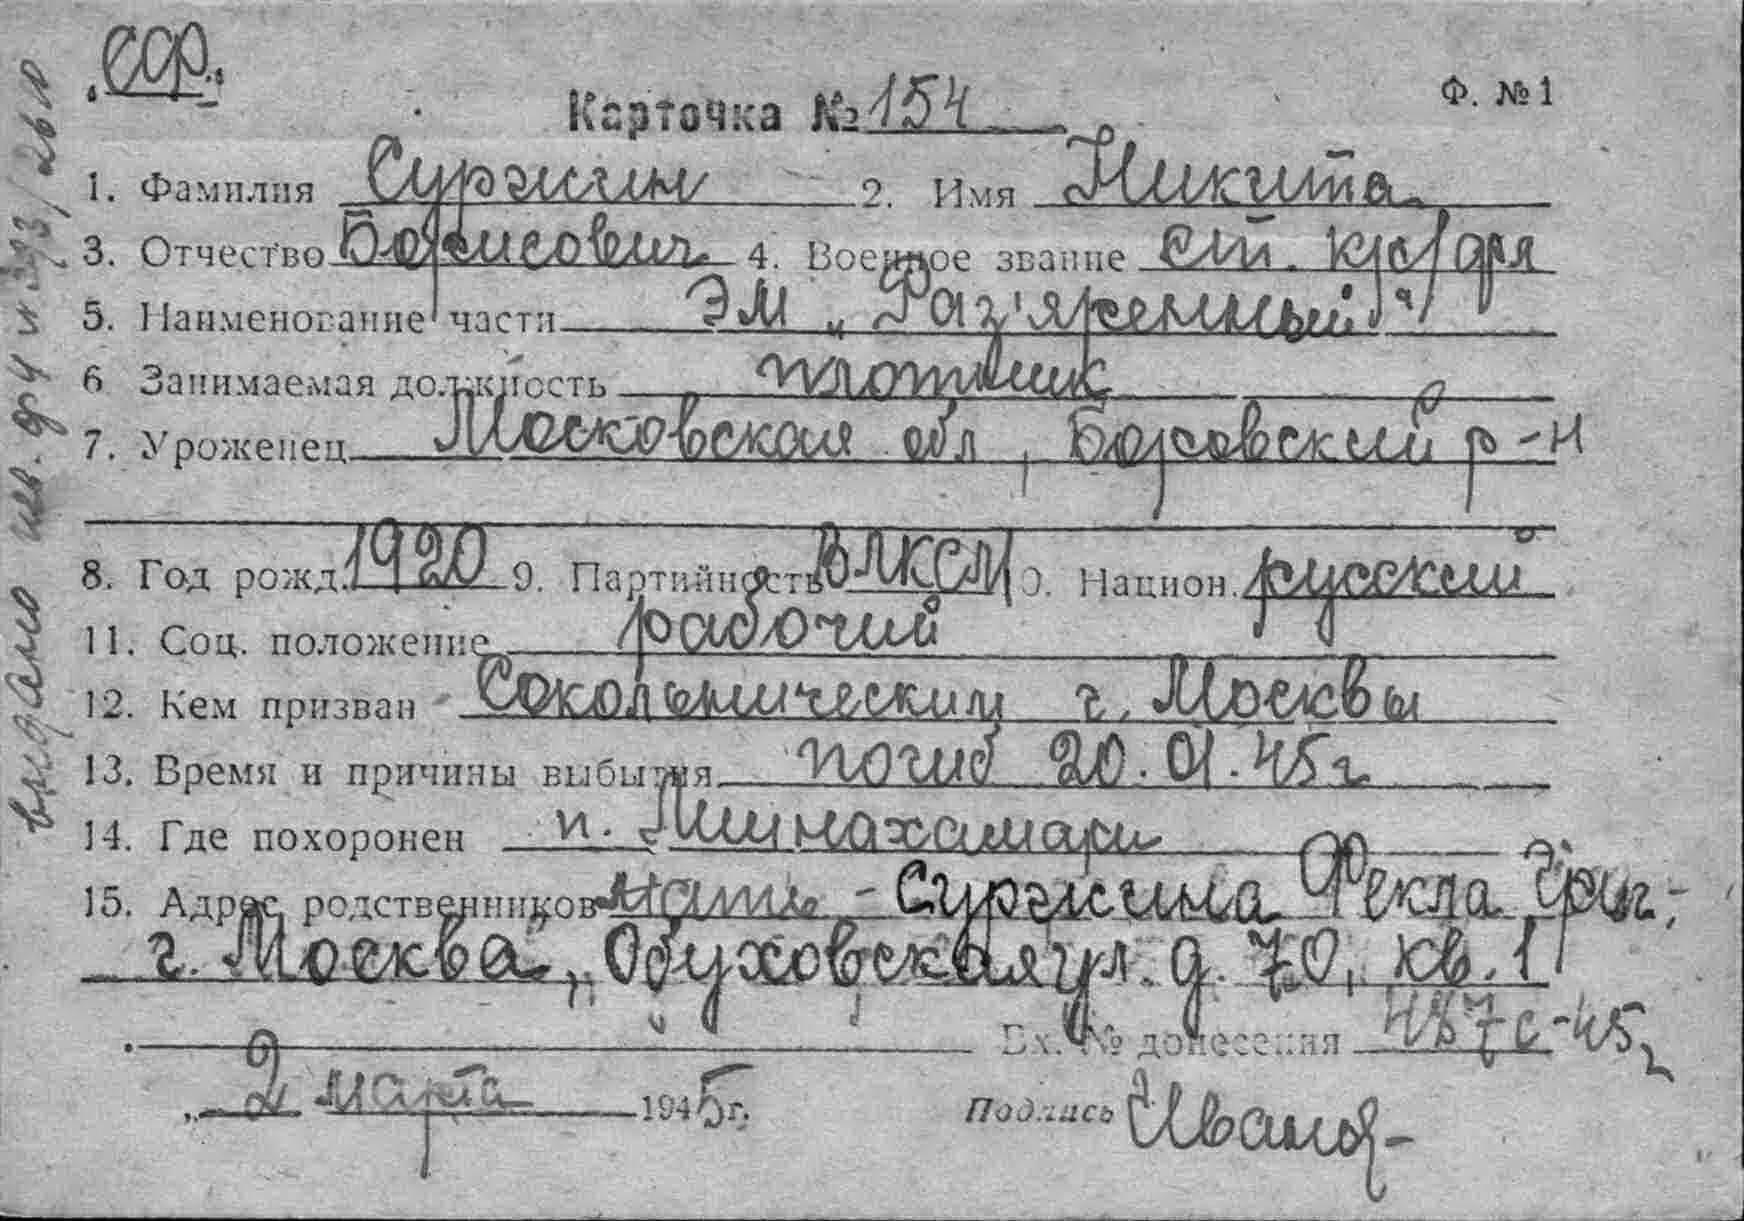 „ССФ"
Ф. № 1
Карточка № 154
1. Фамилия Суржин 2. Имя Никита
3. Отчество Борисович 4. Военное звание ст. кр/фл
5. Наименование части ЭМ „Раз'яренный"
6 Занимаемая должность плотник
7. Уроженец Московская обл, Боровский р-н
8. Год рожд. 1920 9. Партийность ВЛКСМ 10. Национ. русский
11. Соц. положение рабочий
12. Кем призван Сокольническим г. Москвы
13. Время и причины выбытия погиб 20.01.45г
14. Где похоронен п. Линнахамари
15. Адрес родственников мать - Суржина Фекла Григ.
г. Москва, Обуховская ул. д. 70, кв. 1
Вх. № донесения 487с-45г
„ 2 марта 1945г.
Подпись Иванов
выдано